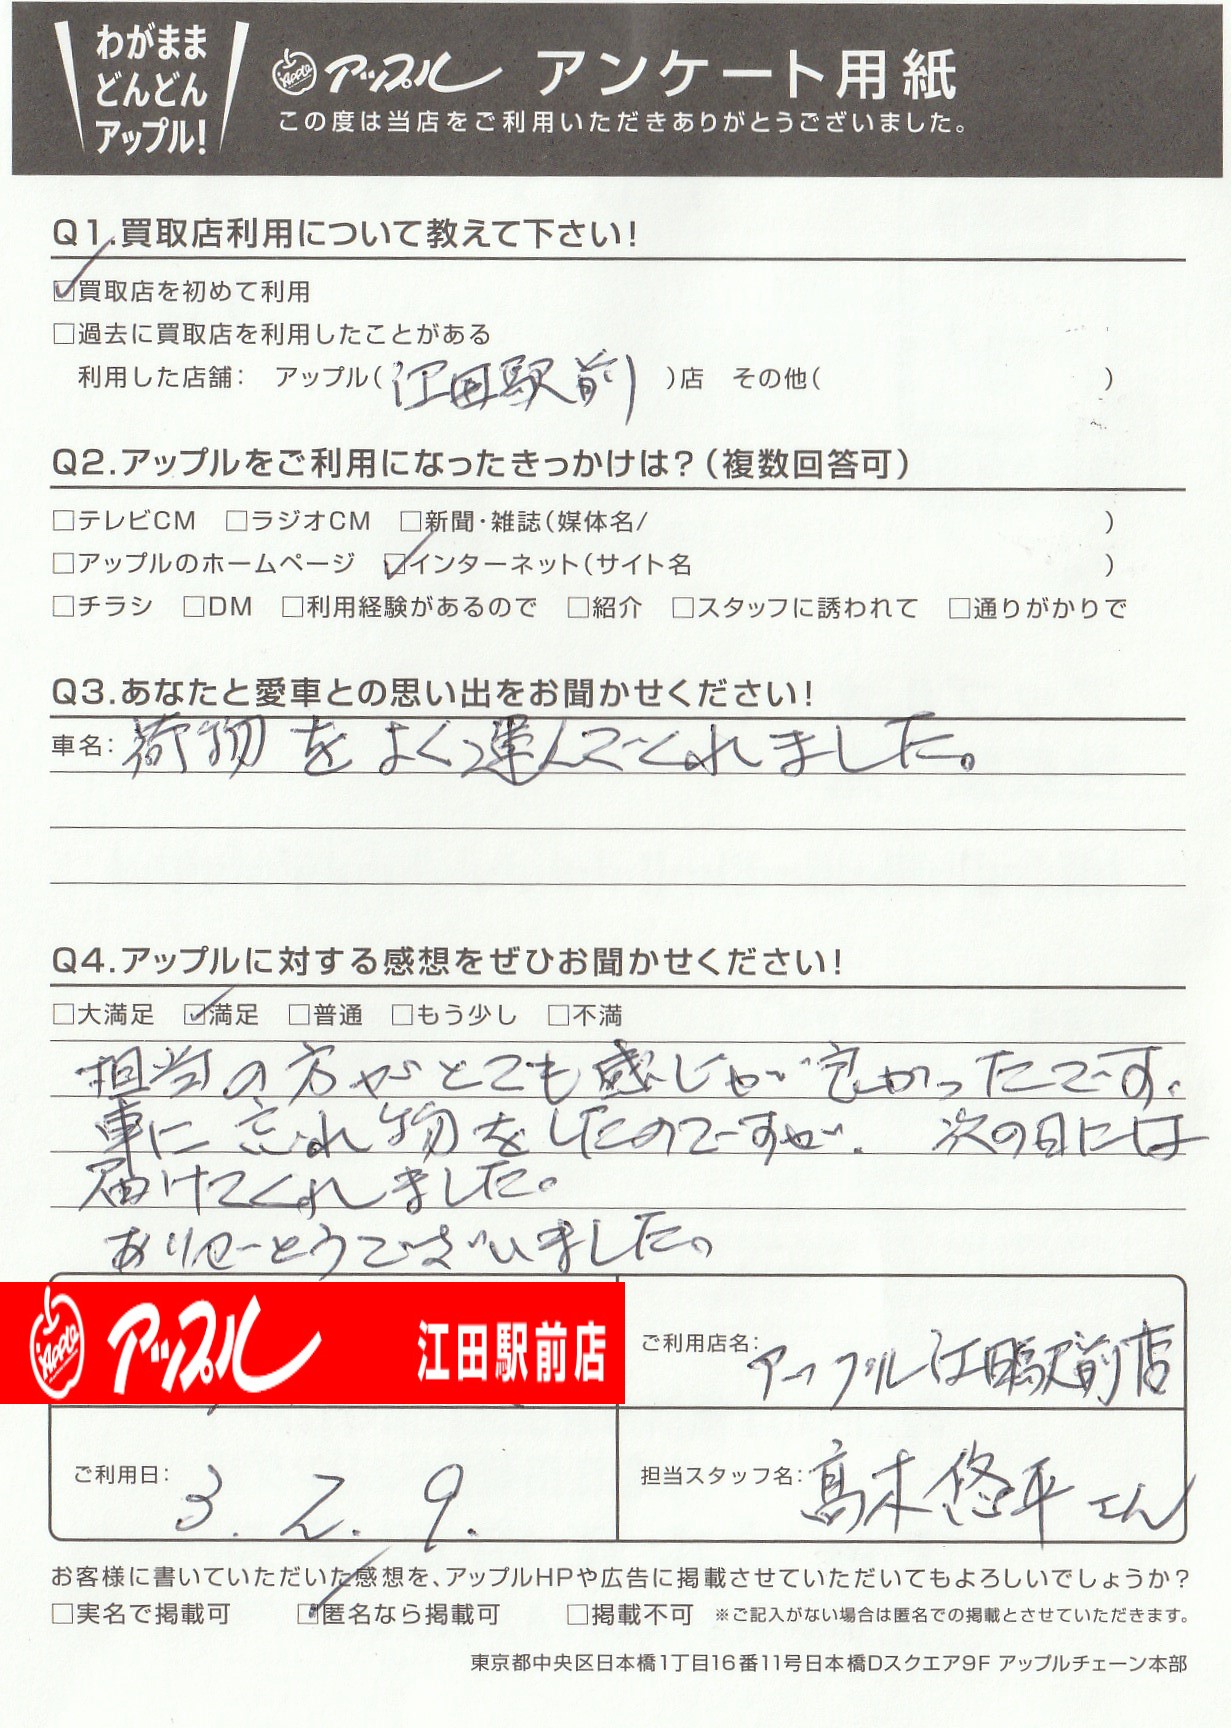 わがまま
どんどん
アップル!
Apple アップル アンケート用紙
この度は当店をご利用いただきありがとうございました。
Q1.買取店利用について教えて下さい!
☑買取店を初めて利用
□過去に買取店を利用したことがある
利用した店舗: アップル(江田駅前)店 その他( )
Q2.アップルをご利用になったきっかけは?(複数回答可)
□テレビCM □ラジオCM □新聞・雑誌(媒体名/ )
□アップルのホームページ ☑インターネット(サイト名 )
□チラシ □DM □利用経験があるので □紹介 □スタッフに誘われて □通りがかりで
Q3.あなたと愛車との思い出をお聞かせください!
車名: 荷物をよく運んでくれました。
Q4.アップルに対する感想をぜひお聞かせください!
□大満足 ☑満足 □普通 □もう少し □不満
担当の方がとても感じが良かったです。
車に忘れ物をしたのですが、次の日には
届けてくれました。
ありがとうございました。
Apple アップル 江田駅前店
ご利用店名: アップル江田駅前店
ご利用日: 3.2.9.
担当スタッフ名: 髙木悠平さん
お客様に書いていただいた感想を、アップルHPや広告に掲載させていただいてもよろしいでしょうか?
□実名で掲載可 ☑匿名なら掲載可 □掲載不可 ※ご記入がない場合は匿名での掲載とさせていただきます。
東京都中央区日本橋1丁目16番11号日本橋Dスクエア9F アップルチェーン本部